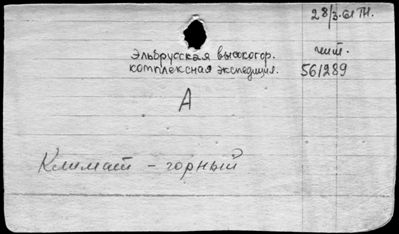 28/3.61 ТН.
Эльбрусская высокогор. чит.
комплексная экспедиция. 561289
А
Климат - горный